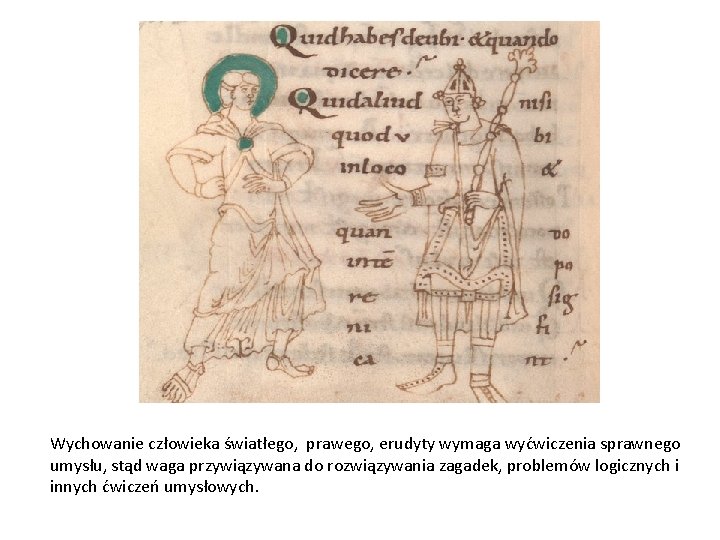 Quid habes de ubi · & quando
dicere ·
Quid aliud nisi
quod v bi
in loco &
quan do
in tē po
re sig
ni fi
ca nt ·
Wychowanie człowieka światłego, prawego, erudyty wymaga wyćwiczenia sprawnego
umysłu, stąd waga przywiązywana do rozwiązywania zagadek, problemów logicznych i
innych ćwiczeń umysłowych.